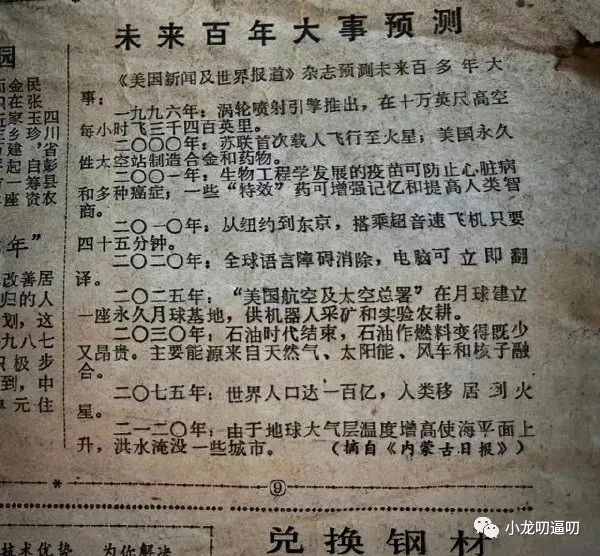 未来百年大事预测
《美国新闻及世界报道》杂志预测未来百多年大
事：
一九九六年：涡轮喷射引擎推出，在十万英尺高空
每小时飞三千四百英里。
二〇〇〇年：苏联首次载人飞行至火星；美国永久
性太空站制造合金和药物。
二〇〇一年：生物工程学发展的疫苗可防止心脏病
和多种癌症；一些“特效”药可增强记忆和提高人类智
商。
二〇一〇年：从纽约到东京，搭乘超音速飞机只要
四十五分钟。
二〇二〇年：全球语言障碍消除，电脑可立即翻
译。
二〇二五年：“美国航空及太空总署”在月球建立
一座永久月球基地，供机器人采矿和实验农耕。
二〇三〇年：石油时代结束，石油作燃料变得既少
又昂贵。主要能源来自天然气、太阳能、风车和核子融
合。
二〇七五年：世界人口达一百亿，人类移居到火
星。
二一二〇年：由于地球大气层温度增高使海平面上
升，洪水淹没一些城市。（摘自《内蒙古日报》）
园
金民
在张
家玉四
乡珍川
建，省
起自彭
一筹县
座资农
年”
改善居
归的人
划，这
九八七
积极步
到，中
单元住
⑨
技术优势 为你解决
兑换钢材
小龙叨逼叨